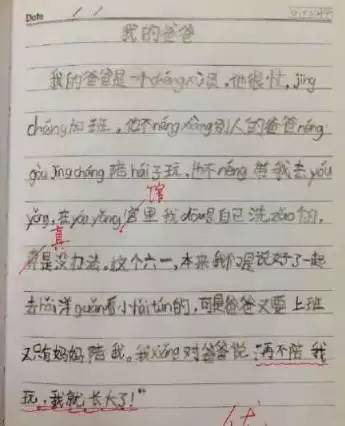 Date / /
我的爸爸
我的爸爸是一个chéngxù员,他很忙,jīng
cháng加班,他不néng xiàng别人的爸爸néng
gòu jīngcháng陪hái子玩,他不néng带我去yóu
yǒng,在yóu yǒng宫里我dōu是自己洗zǎo的,
馆
真
真是没办法。这个六一,本来我们是说好了一起
去hǎi洋guǎn看小hǎi tún的,可是爸爸又要上班
又只有妈妈陪我。我xiǎng对爸爸说:"再不陪我
玩,我就长大了!"
优